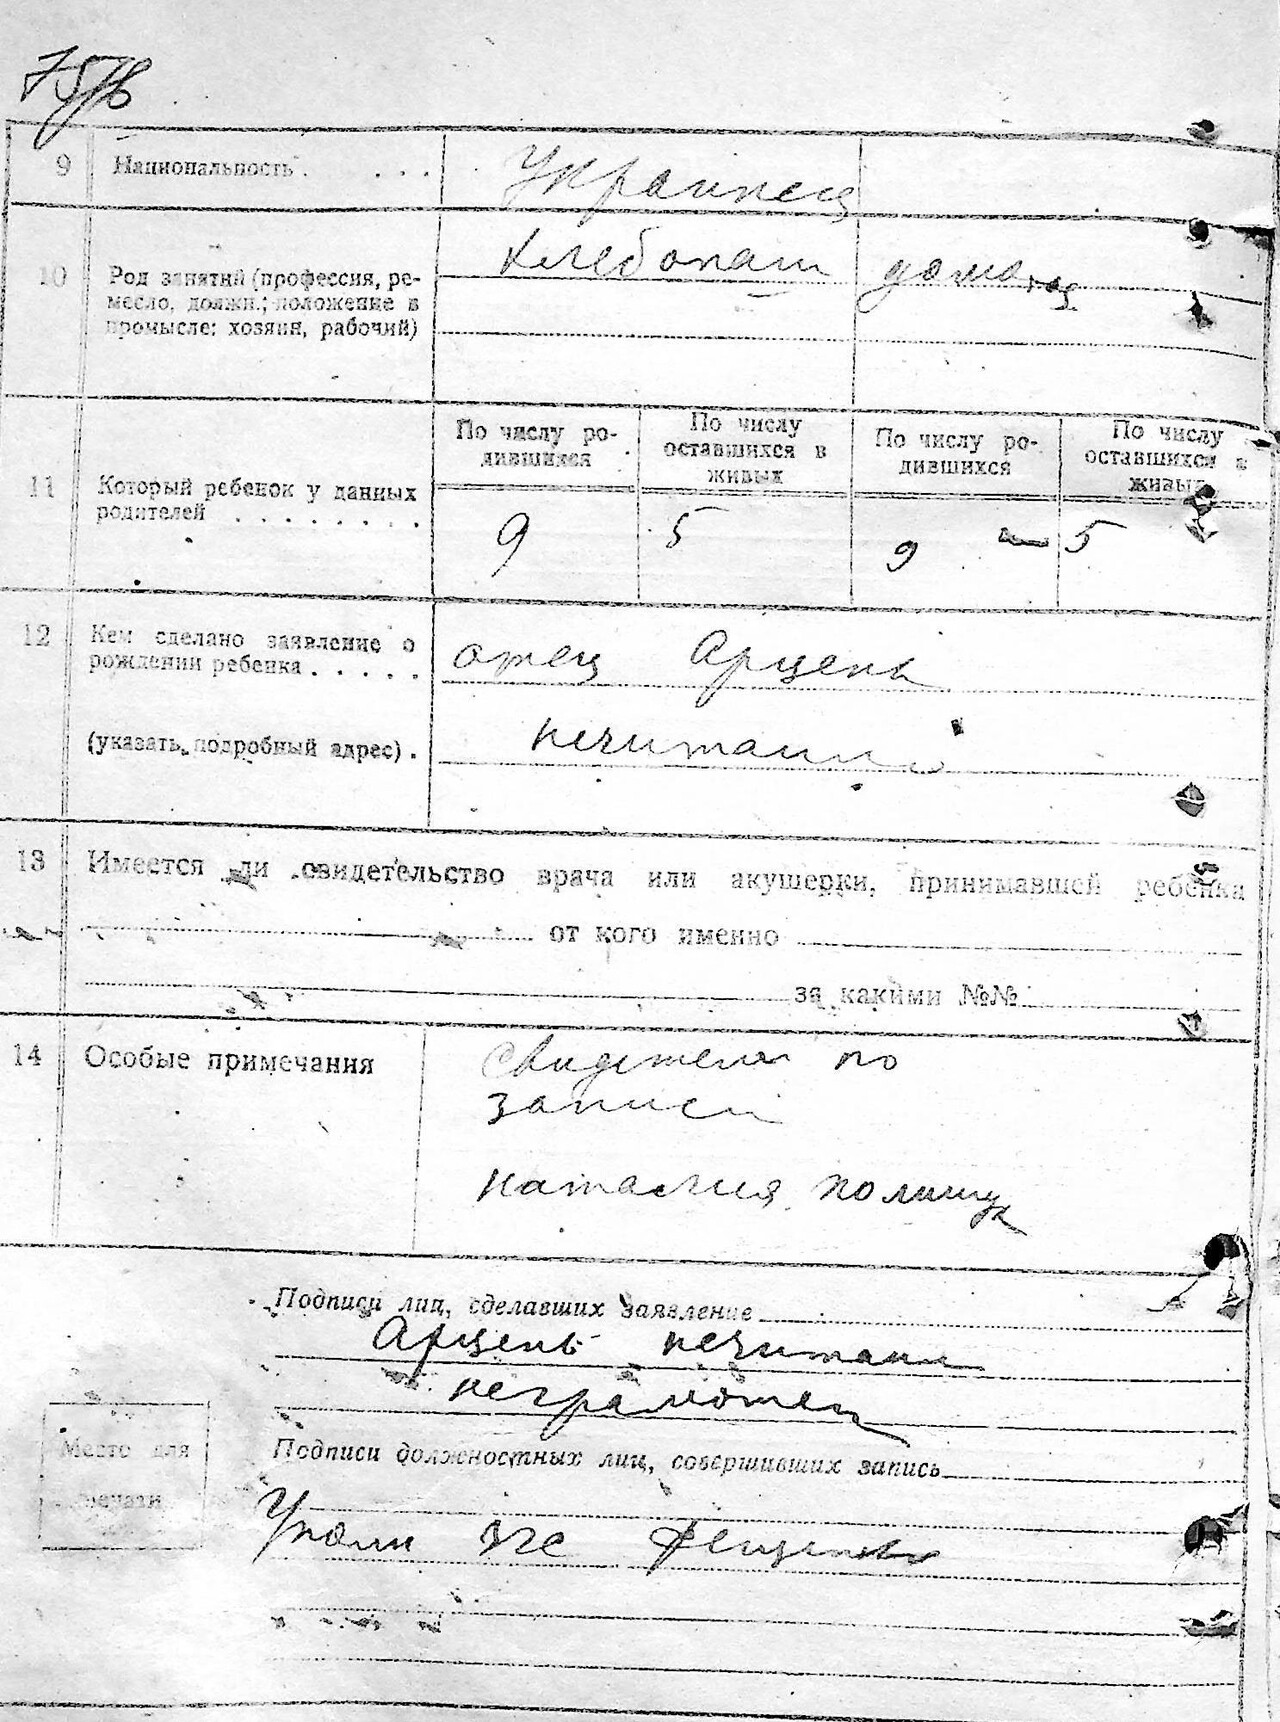 9 Национальность . . . . Украинец
10 Род занятий (профессия, ре-
месло, должн.; положение в
промысле: хозяин, рабочий)
Хлебопаш домохоз
11 Который ребенок у данных
родителей . . . . . . . .
По числу ро-
дившихся
По числу
оставшихся в
живых
По числу ро-
дившихся
По числу
оставшихся в
живых
9 5 9 5
12 Кем сделано заявление о
рождении ребенка . . . . .
отец Арцень
(указать подробный адрес) .
нечитаині
13 Имеется ли свидетельство врача или акушерки, принимавшей ребенка
от кого именно
за какими №№
14 Особые примечания
Свидетели по
записи
Наталия Полищук
Подписи лиц, сделавших заявление
Арцень
неграмотен
Место для
печати
Подписи должностных лиц, совершивших запись